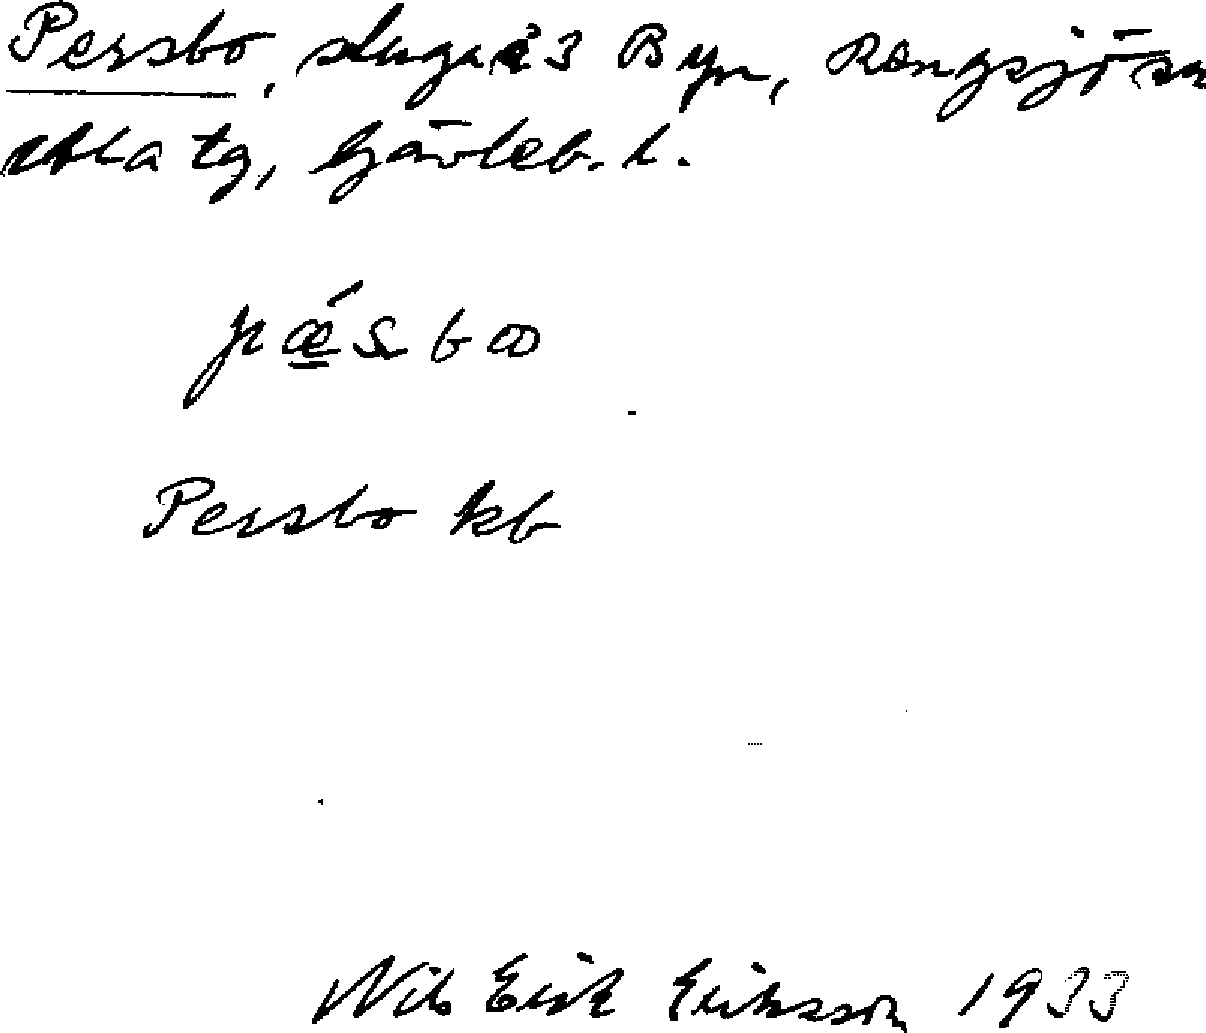 Persbo, stuga i 3 Byn, Rengsjö sn
Ala tg, Gävleb. l.
pǽsboo
Persbo kb
Nils Erik Eriksson 1933